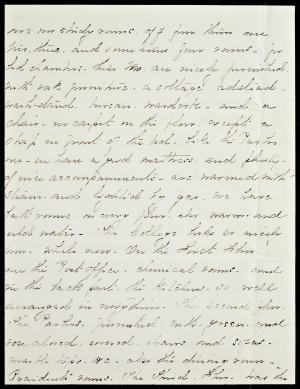 our no study rooms. off from them are
two, three, and sometimes four rooms - for
bed chambers, these are nicely furnished
with oak furniture, a cottage bedstead,
wash-stand, bureau, wardrobe, and a
chair. no carpet on the floor, except a
strip in front of the bed, like the Parlor
one - we have a good mattress, and plenty,
of nice accompaniments - are warmed with
Steam, and lighted by gas. We have
bath rooms, on every floor, also warm and
cold water. The College looks so nicely
now, while new. On the First floor
are the Post office, chemical rooms, and
in the back part, the Kitchen, so well
arranged in everything. The Second floor
The Parlors, furnished with green, and
rose colored, covered chairs, and sofas -
marble tops, &c. also the dining room -
Presidents rooms. The Third floor has the